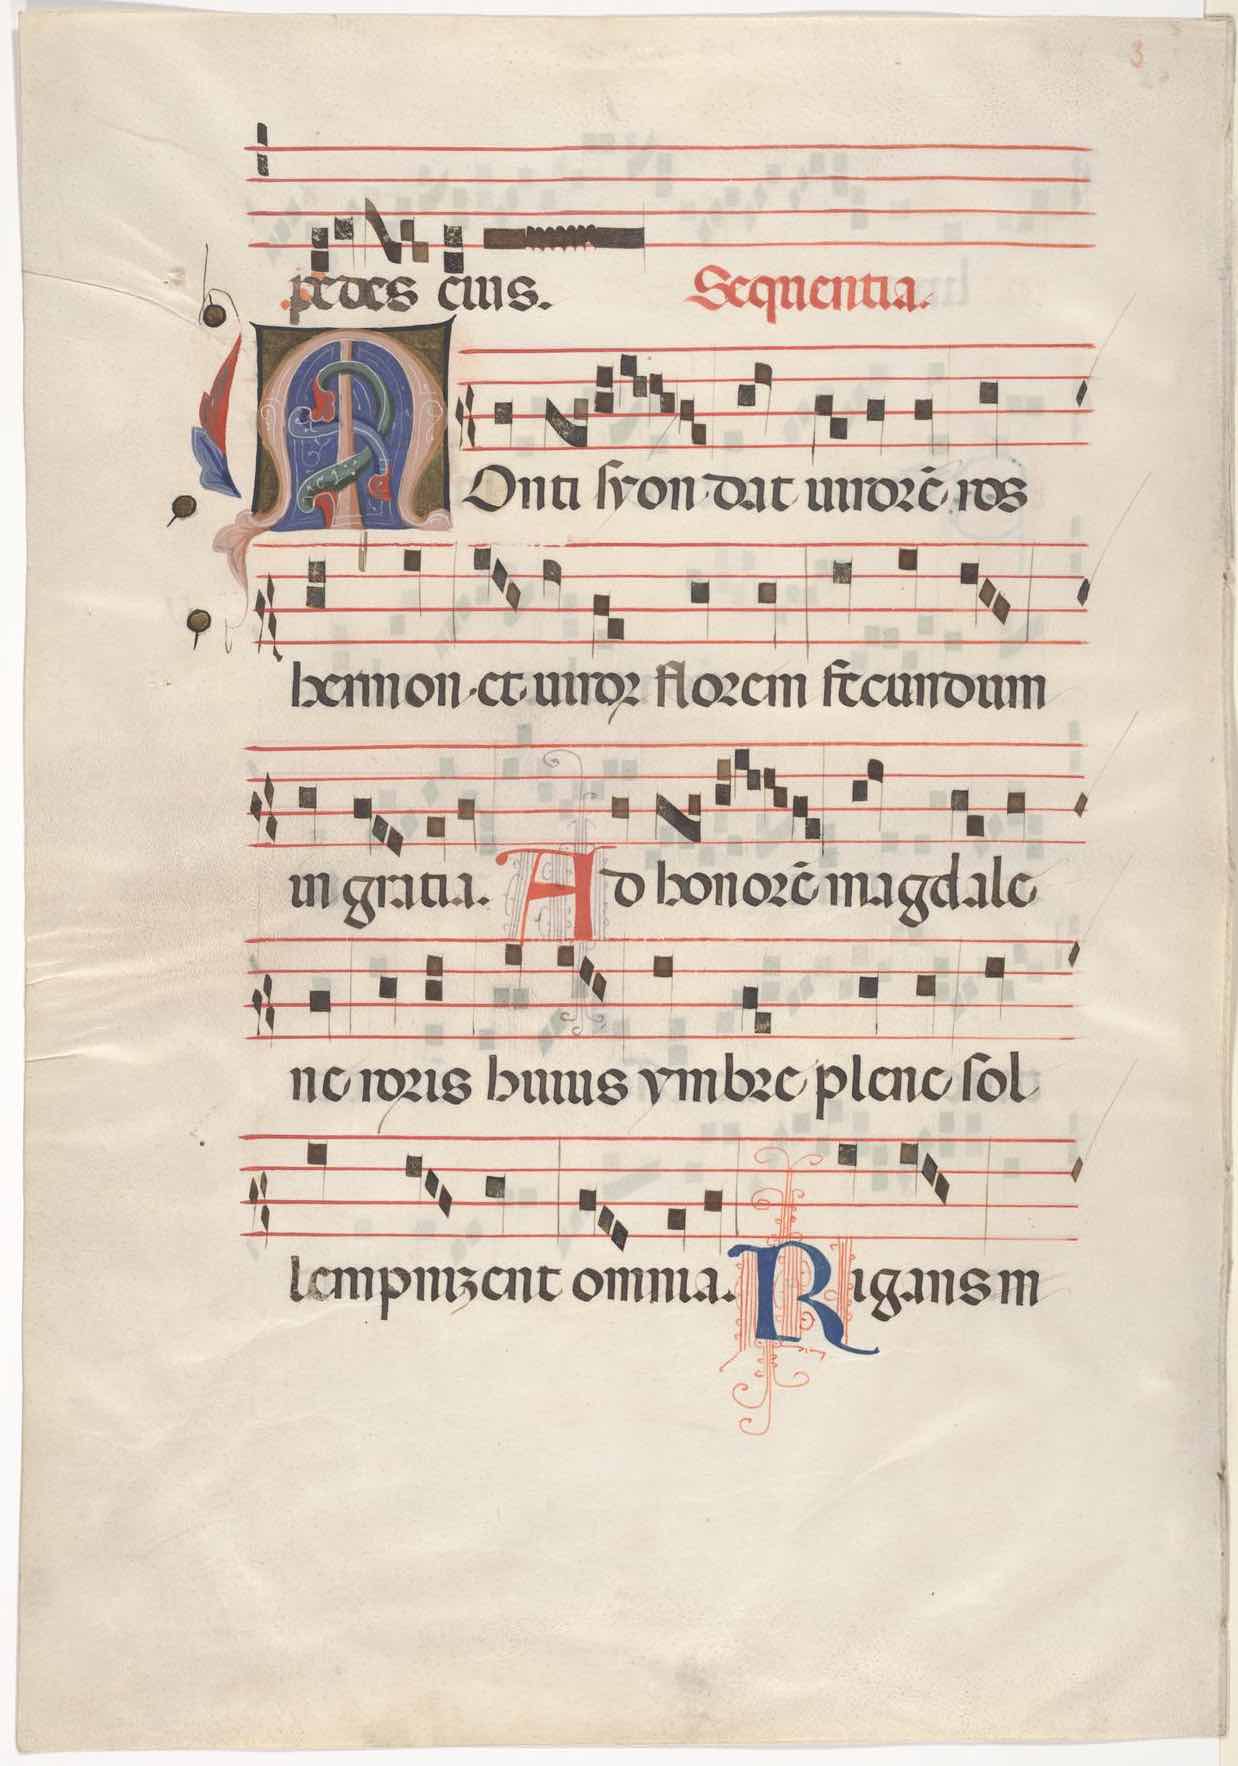 3
pedes eius. Sequentia.
MOnti syon dat uirorē ros
hermon et uiror florem fecundum
in gratia. Ad honorē magdale
ne roris huius ymbre plene sol
lempnizent omnia. Rigans in